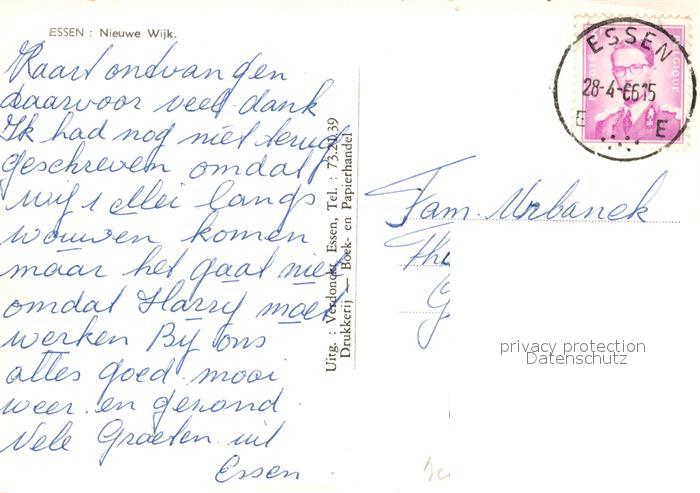 ESSEN : Nieuwe Wijk.
Kaart ontvangen
daarvoor veel dank
Ik had nog niet terug
geschreven omdat
wij 1 Mei langs
wouwen komen
maar het gaat niet
omdat Harry moet
werken Bij ons
alles goed. mooi
weer en gezond.
Vele Groeten uit
Essen
Uitg. : Verdonckt Essen, Tel. : 73.20.39
Drukkerij — Boek- en Papierhandel
ESSEN
28-4-6615
E E
BELGIË BELGIQUE
Fam. Urbanek
privacy protection
Datenschutz